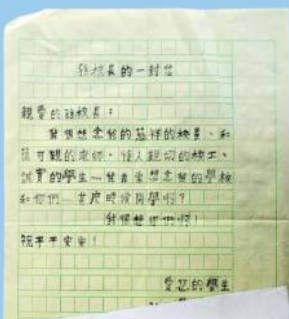 孫校長的一封信
親愛的孫校長：
我很想念我的慈祥的校長、和
藹可親的老師、待人親切的校工、
誠實的學生一我者常想念我的學校
和你們 甚麼時候開學啊?
我很想你們啊!
祝平平安安!
愛您的學生